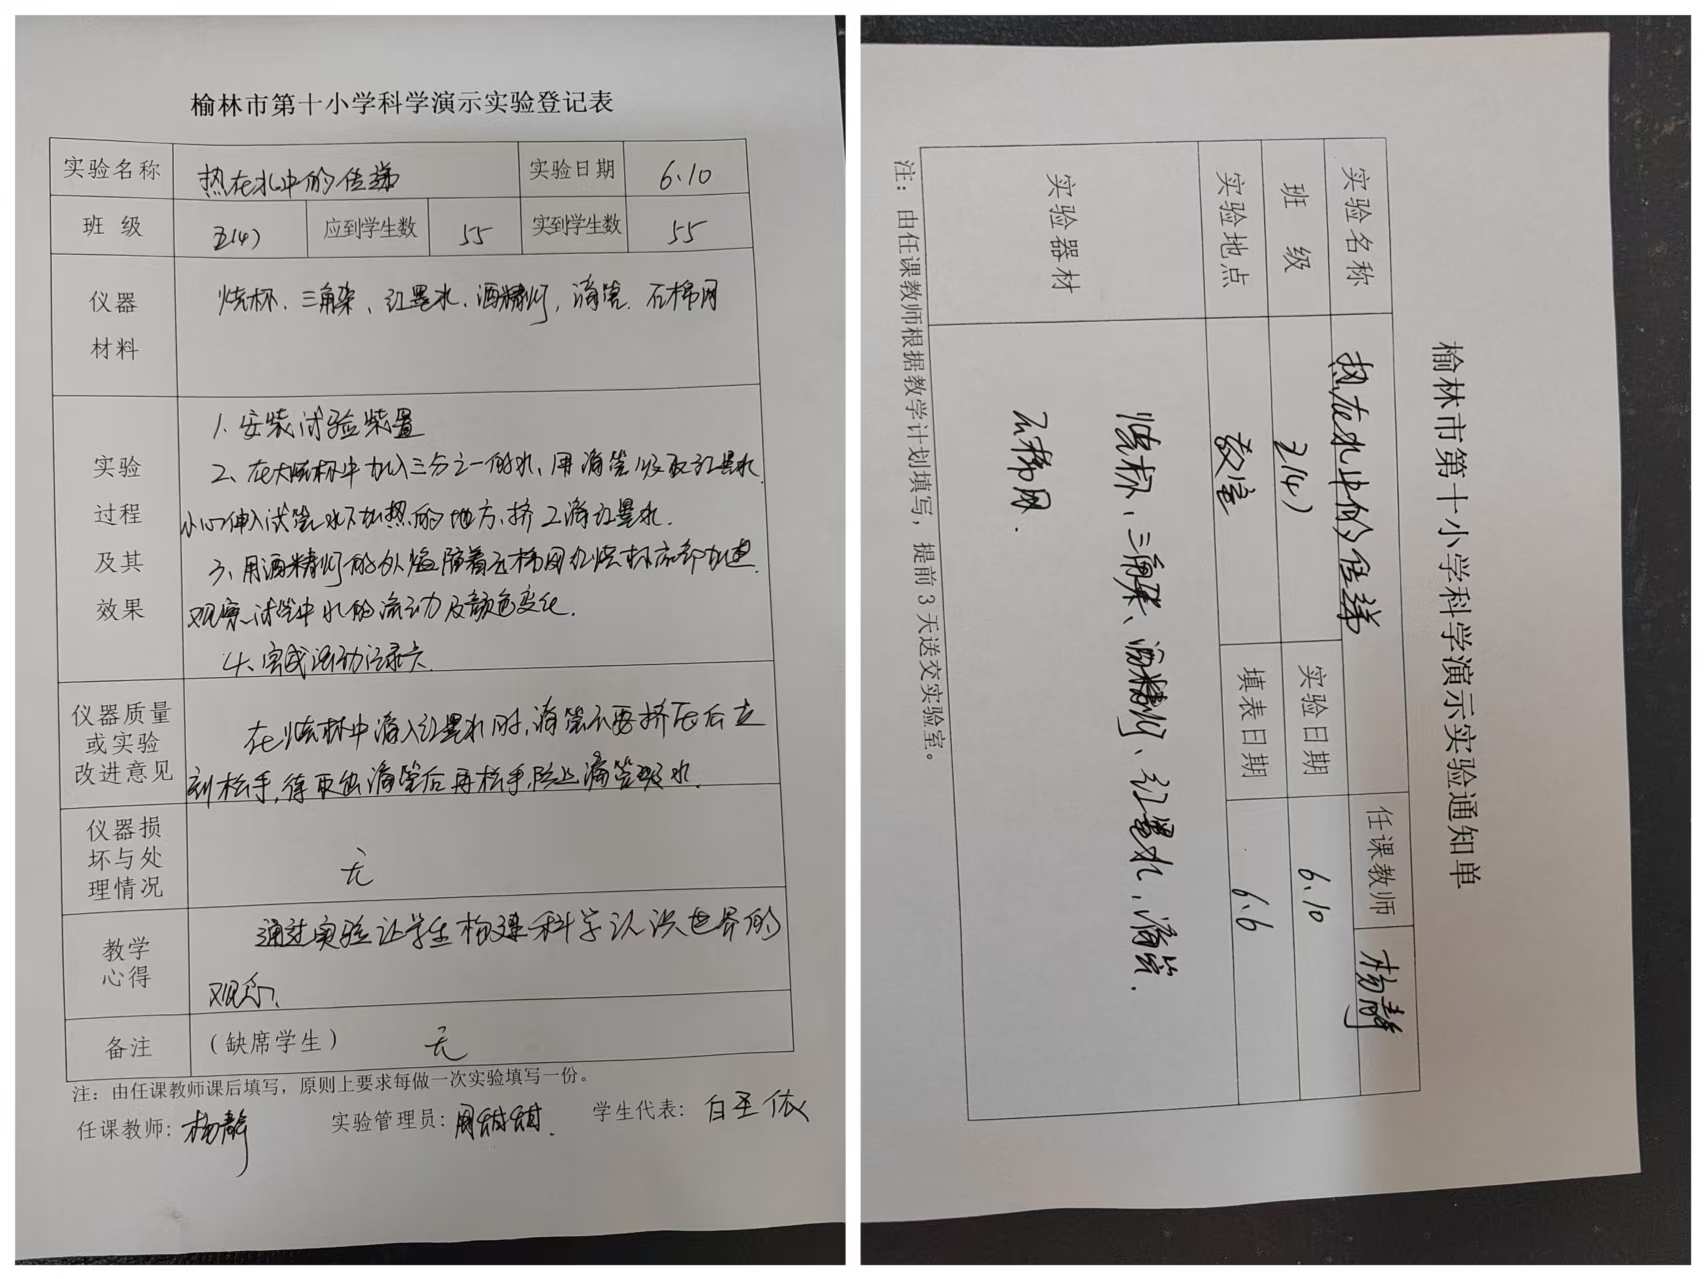 榆林市第十小学科学演示实验登记表
实验名称 热在水中的传递 实验日期 6.10
班 级 五(4) 应到学生数 55 实到学生数 55
仪器 材料 烧杯、三角架、红墨水、酒精灯、滴管、石棉网
实验 过程 及其 效果
1、安装试验装置
2、在大烧杯中加入三分之一的水、用滴管吸取红墨水
小心伸入试管水下加热的地方、挤2滴红墨水.
3、用酒精灯的外焰隔着石棉网在烧杯底部加热.
观察试管中水的流动及颜色变化.
4、完成活动记录
仪器质量 或实验 改进意见
在烧杯中滴入红墨水时,滴管不要挤压后立
刻松手,待取出滴管后再松手,防止滴管吸水.
仪器损 坏与处 理情况 无
教学 心得
通过实验让学生构建科学认识世界的
观念.
备注 (缺席学生) 无
注：由任课教师课后填写，原则上要求每做一次实验填写一份。
任课教师: 杨静 实验管理员: 周甜甜. 学生代表: 白圣依
榆林市第十小学科学演示实验通知单
实验名称 热在水中的传递 任课教师 杨静
班 级 五(4) 实验日期 6.10
实验地点 教室 填表日期 6.6
实验器材 烧杯、三角架、酒精灯、红墨水、滴管.
石棉网.
注：由任课教师根据教学计划填写，提前3天送交实验室。